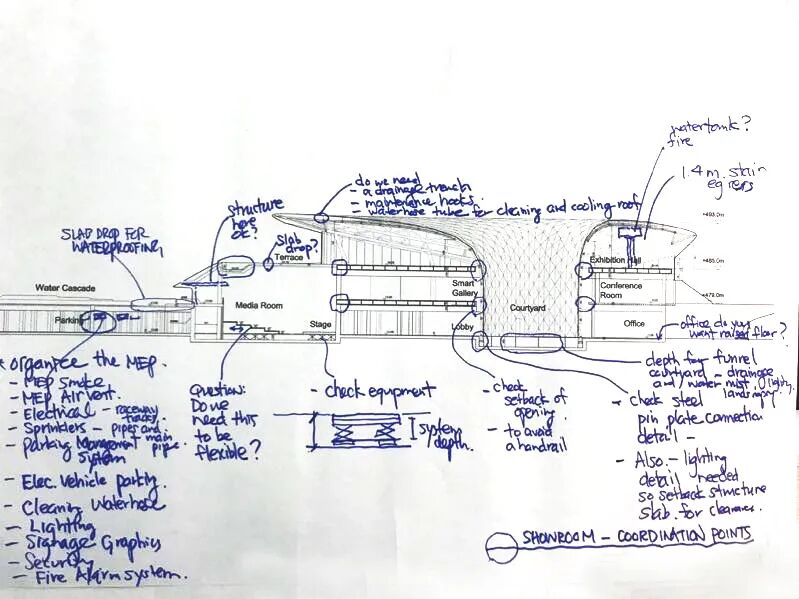 watertank?
fire
1.4m. stair
egress
do we need
- a drainage trench
- maintenance hooks.
- waterhose tube for cleaning and cooling roof
structure
here
ok?
slab
drop?
SLAB DROP FOR
WATERPROOFING
+493.0m
+485.0m
+479.0m
Terrace
Exhibition Hall
Water Cascade
Smart
Gallery
Conference
Room
Media Room
Courtyard
Parking
Stage
Lobby
Office
office do you
want raised floor?
* organize the MEP.
- MEP Smoke
- MEP Air vent.
- Electrical - raceway
tracks
- Sprinklers - pipes and
main
pipe.
- Parking Management
System
- Elec. Vehicle parking.
- Cleaning Waterhose
- Lighting
- Signage Graphics
- Security
- Fire Alarm system.
Question:
Do we
need this
to be
flexible?
- check equipment
system
depth.
- check
setback of
opening
- to avoid
a handrail
depth for funnel
courtyard - drainage
and/water mist, lighting
landscaping.
- check steel
pin plate connection
detail -
- Also - lighting
detail needed
so setback structure
slab for clearance.
SHOWROOM - COORDINATION POINTS